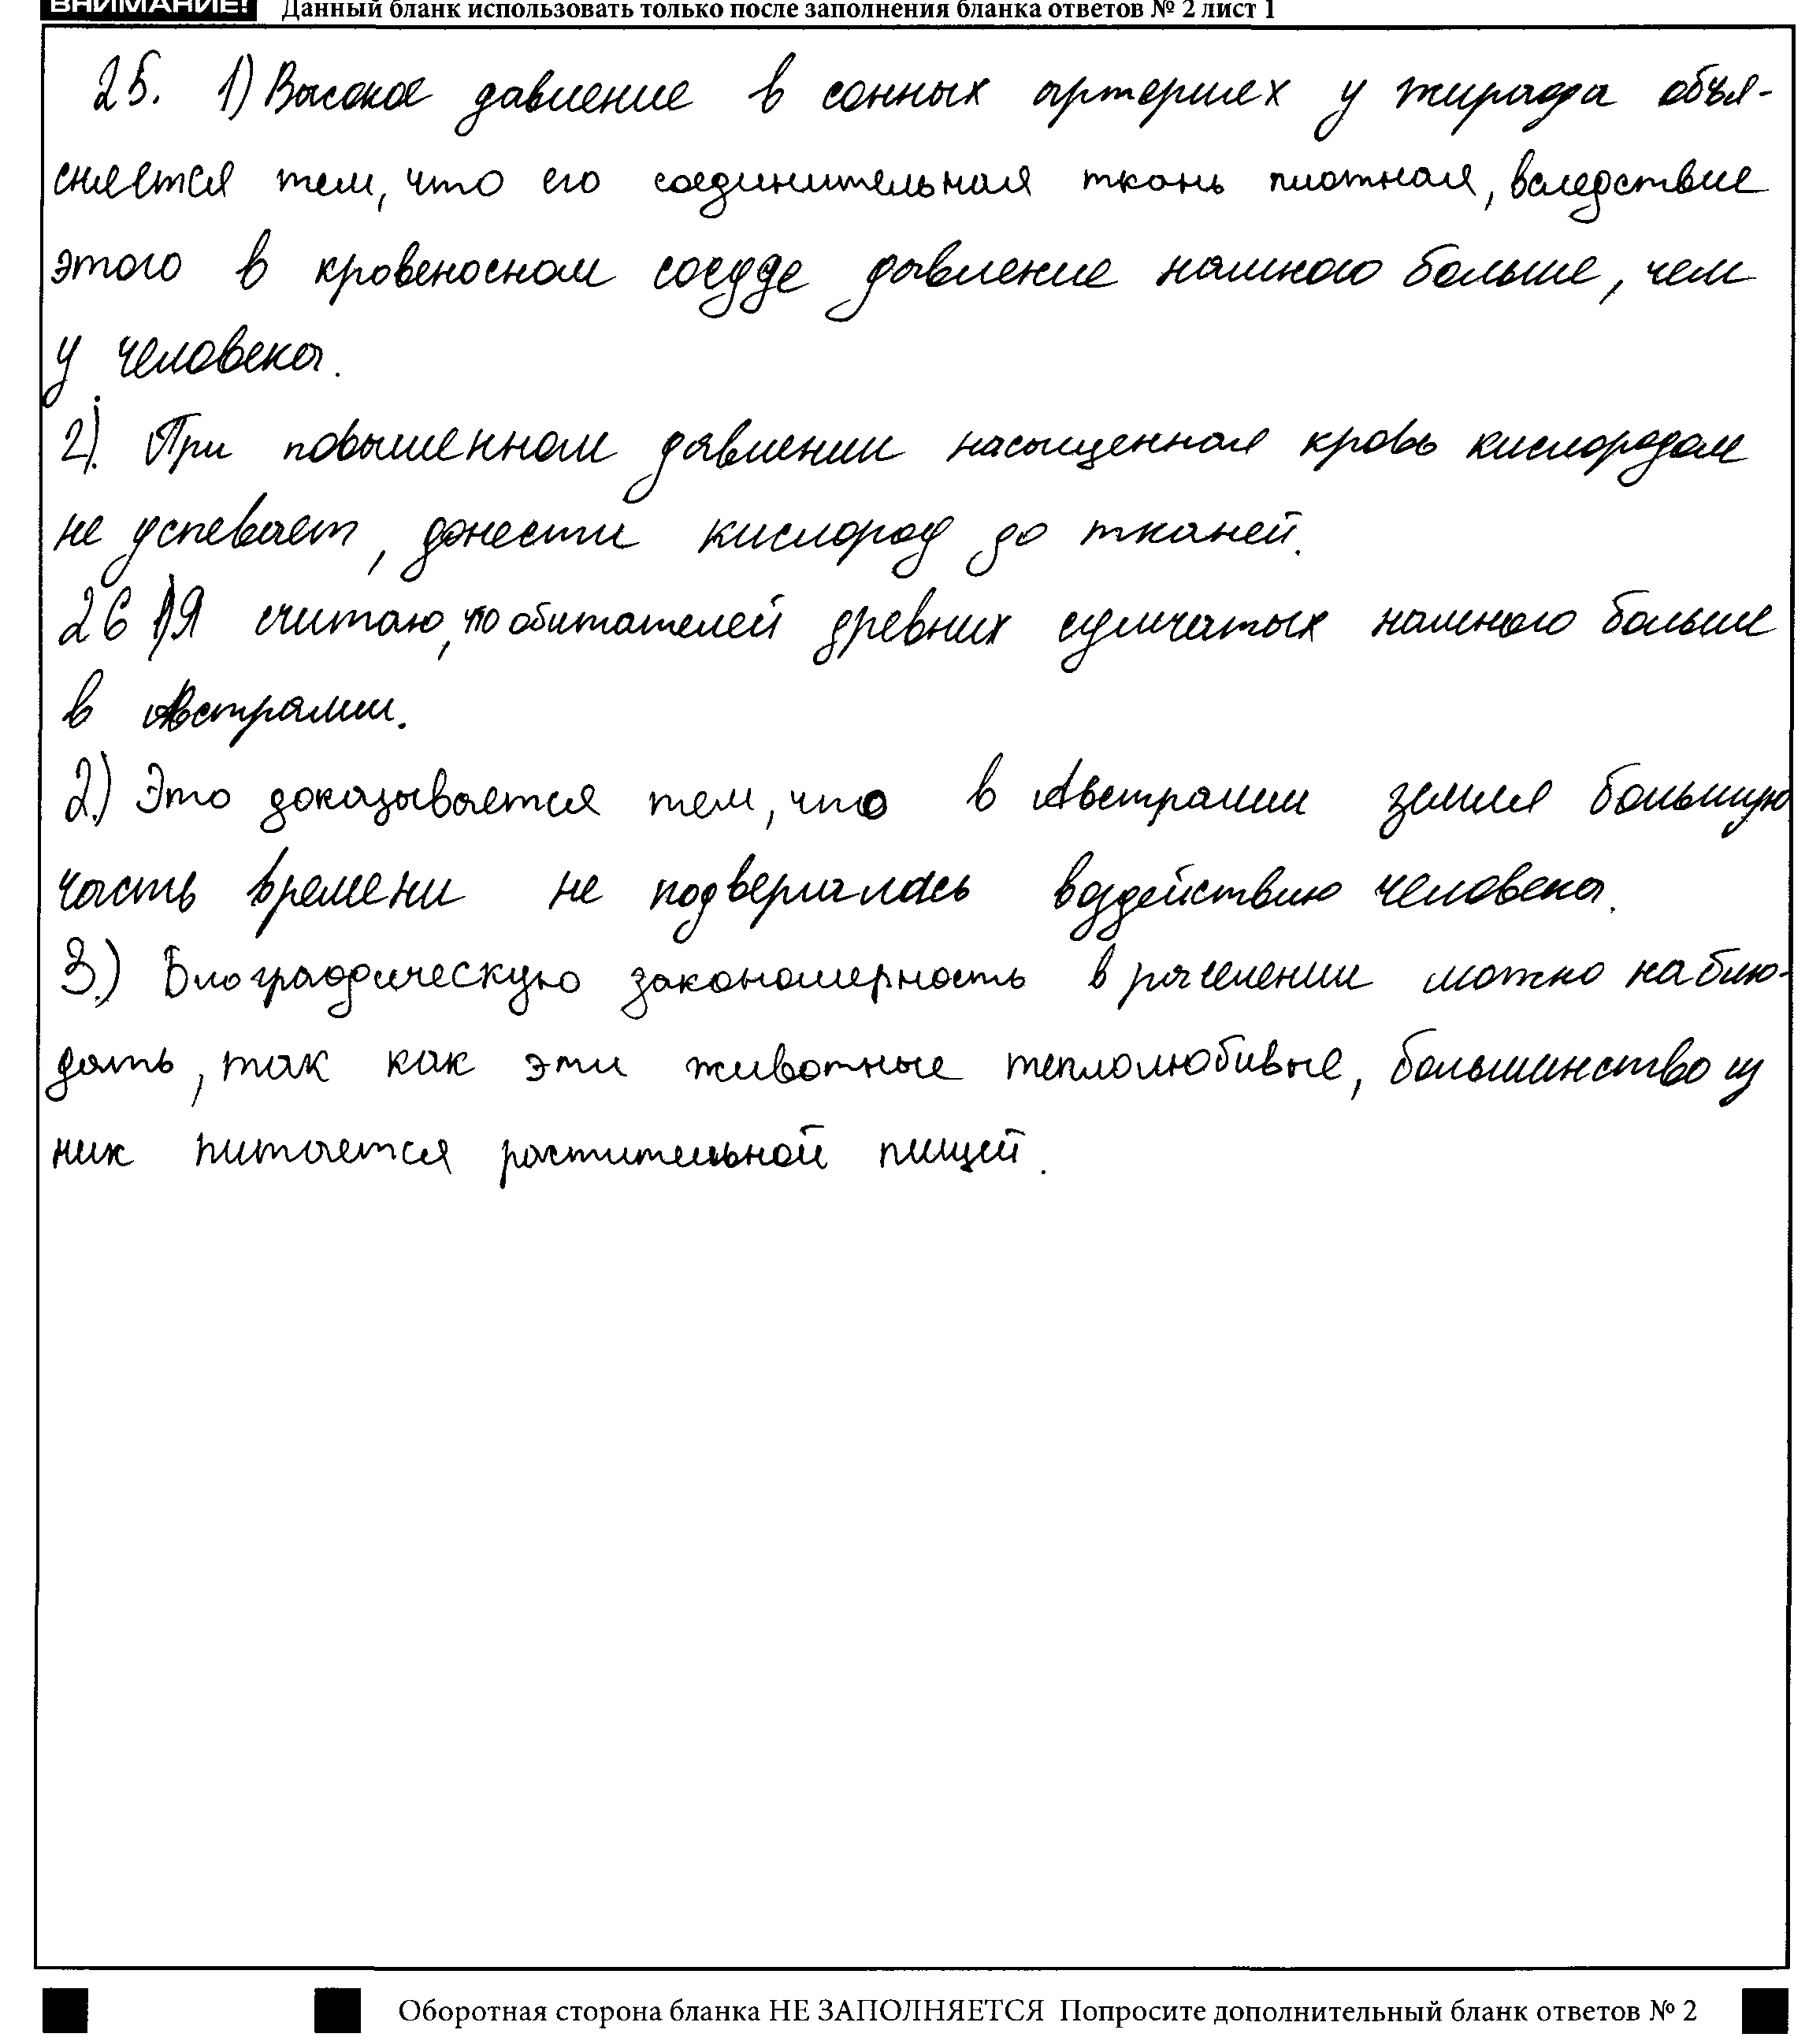 ВНИМАНИЕ! Данный бланк использовать только после заполнения бланка ответов № 2 лист 1
25. 1) Высокое давление в сонных артериях у жирафа объя-
сняется тем, что его соединительная ткань плотная, вследствие
этого в кровеносном сосуде давление намного больше, чем
у человека.
2). При повышенном давлении насыщенная кровь кислородом
не успевает, донести кислород до тканей.
26 1) Я считаю, что обитателей древних сумчатых намного больше
в Австралии.
2.) Это доказывается тем, что в Австралии земля большую
часть времени не подвергалась воздействию человека.
3.) Биографическую закономерность в рачелении можно наблю-
дать, так как эти животные теплолюбивые, большинство из
них питается растительной пищей.
Оборотная сторона бланка НЕ ЗАПОЛНЯЕТСЯ Попросите дополнительный бланк ответов № 2